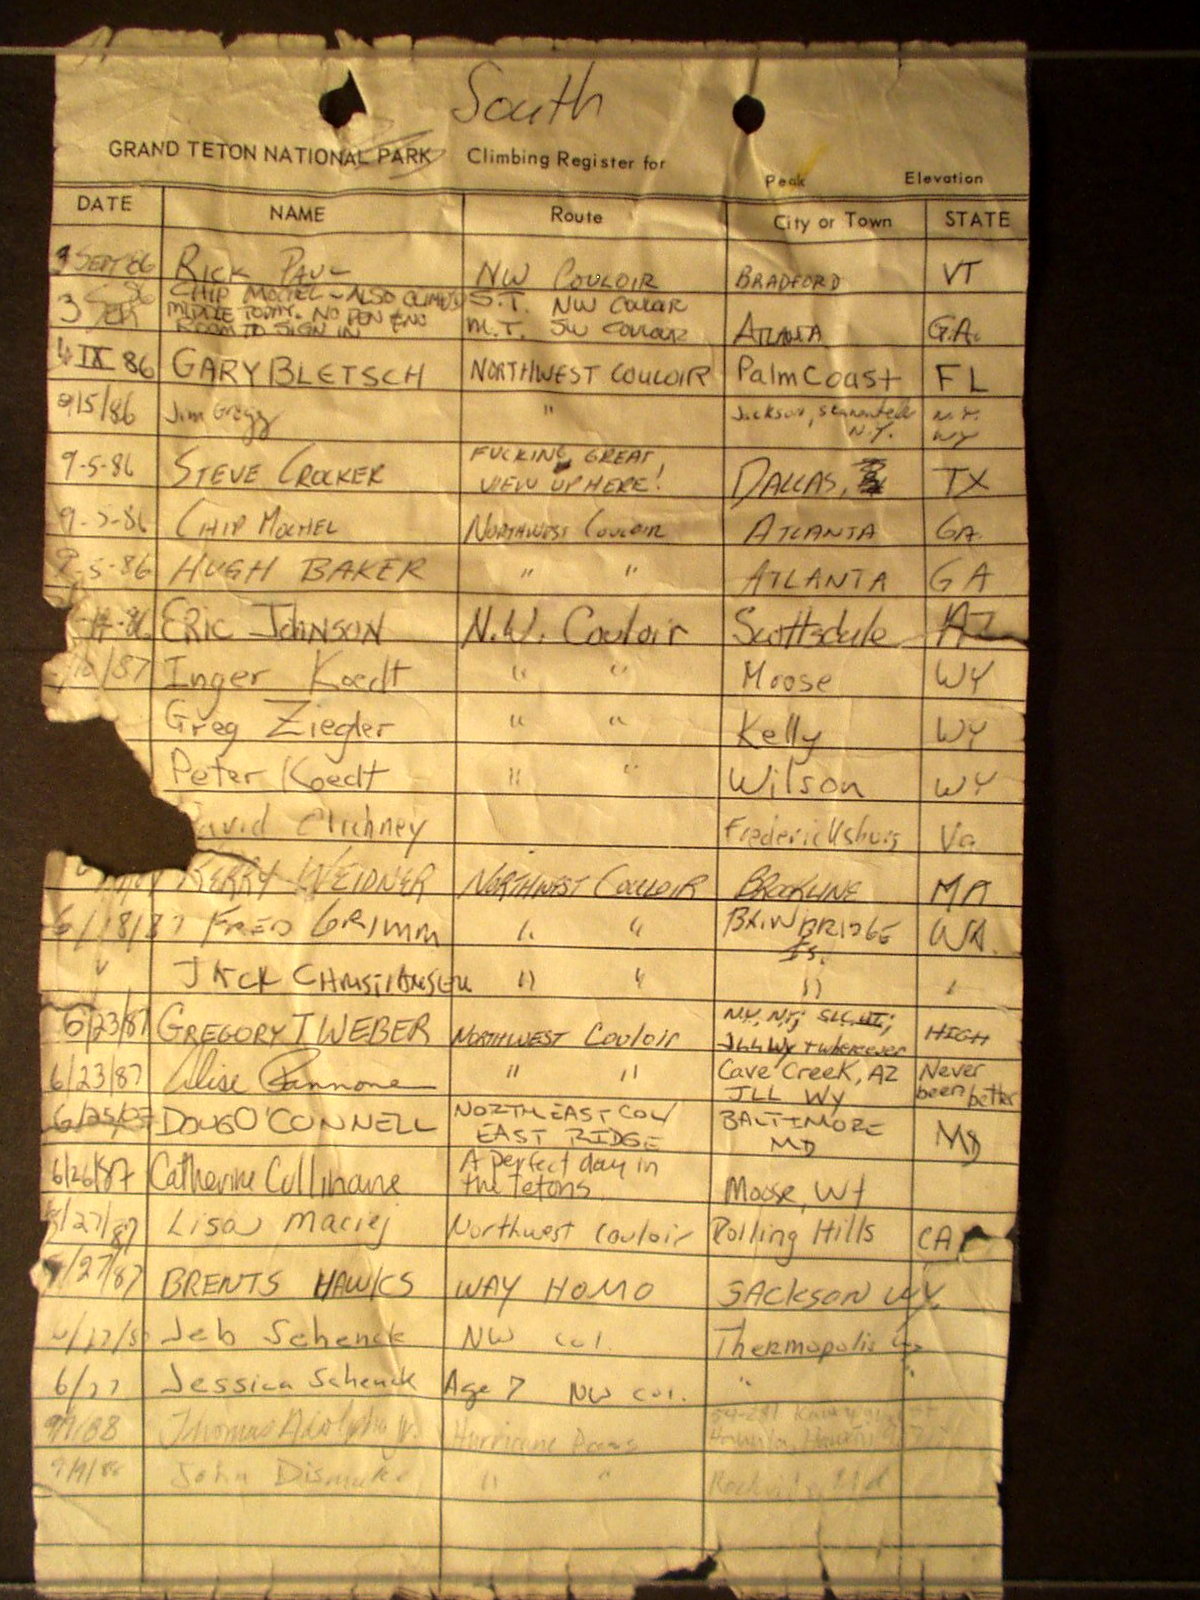 South
GRAND TETON NATIONAL PARK Climbing Register for
Peak Elevation
DATE NAME Route City or Town STATE
3 SEPT 86 RICK PAUL NW COULOIR BRADFORD VT
3 86 CHIP MOCHEL - ALSO CLIMBED S.T. NW COULOIR
MIDDLE TODAY. NO PEN AND M.T. SW COULOIR ATLANTA GA.
ROOM TO SIGN IN
4 IX 86 GARY BLETSCH NORTHWEST COULOIR Palm Coast FL
9/5/86 Jim Gregg " Jackson, N.Y.
N.Y. WY
9-5-86 STEVE CROCKER FUCKING GREAT
VIEW UP HERE! DALLAS, TX
CHIP MOCHEL NORTHWEST COULOIR ATLANTA GA
9-5-86 HUGH BAKER " " ATLANTA GA
86 ERIC JOHNSON N.W. Couloir Scottsdale AZ
/87 Inger Koedt " " Moose WY
Greg Ziegler " " Kelly WY
Peter Koedt " " Wilson WY
David Fredericksburg Va
KERRY WEIDNER NORTHWEST COULOIR BROOKLINE MA
6/18/87 FRED GRIMM " " BAINBRIDGE WA.
Is.
" JACK CHRISTIANSEN " " " "
6/23/87 GREGORY T WEBER NORTHWEST Couloir N.Y. NY; SLC, UT; HIGH
JLL WY + wherever
6/23/87 Alise " " Cave Creek, AZ Never
JLL WY been better
6/25/87 DOUG O'CONNELL NORTHEAST COL/ BALTIMORE
EAST RIDGE MD MD
6/26/87 Catherine Cullinane A perfect day in
the Tetons. Moose, WY
6/27/87 Lisa Maciej Northwest Couloir Rolling Hills CA
6/27/87 BRENTS HAWKS WAY HOMO JACKSON WY.
Jeb Schenck NW Col. Thermopolis
6/27 Jessica Schenck Age 7 NW Col. " "
9/9/88 Thomas Adolpho Jr. Hurricane Pass
Hauula, Hawaii
9/9/88 John Dismuke " " Rockville, Md